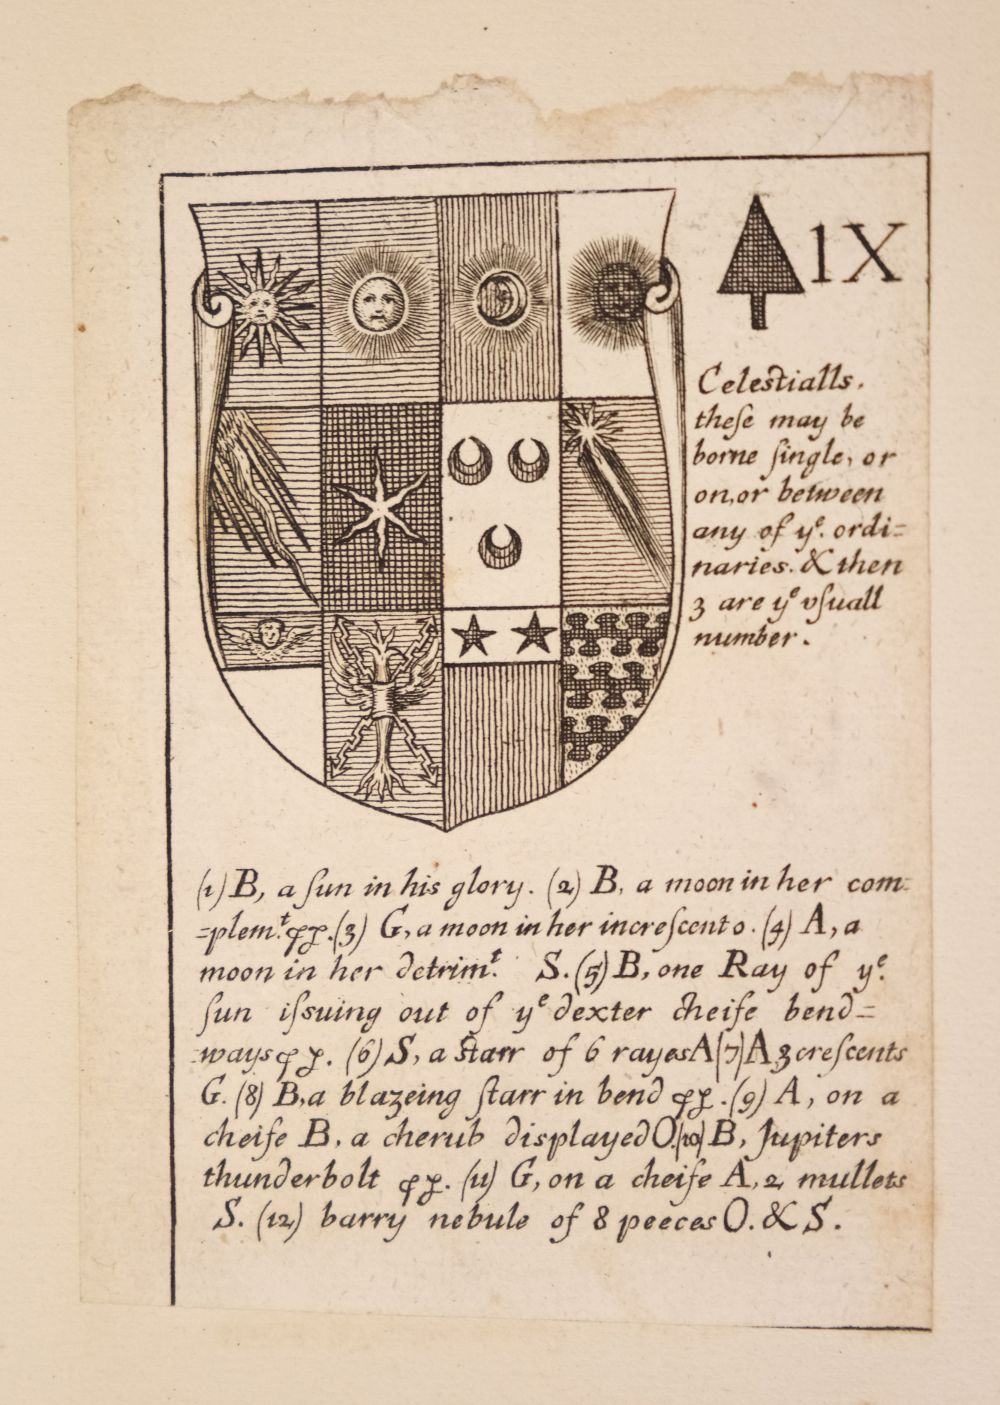 1X
Celestialls,
theſe may be
borne ſingle, or
on, or between
any of yᵉ. ordi=
naries. & then
3 are yᵉ vſuall
number.
(1) B, a ſun in his glory. (2) B, a moon in her com=
=plem.ᵗ pp. (3) G, a moon in her increſcent o. (4) A, a
moon in her detrimᵗ. S. (5) B, one Ray of yᵉ.
ſun iſsuing out of yᵉ dexter cheife bend=
ways pp. (6) S, a Starr of 6 rayes A (7) A 3 creſcents
G. (8) B, a blazeing ſtarr in bend pp. (9) A, on a
cheife B, a cherub displayed O. (10) B, Jupiters
thunderbolt pp. (11) G, on a cheife A, 2 mullets
S. (12) barry nebule of 8 peeces O. & S.